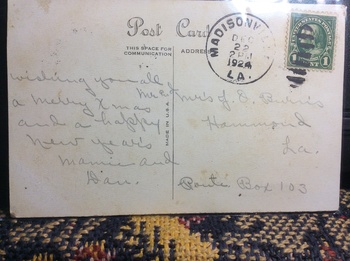 Post Card
THIS SPACE FOR
COMMUNICATION
ADDRESS
MADISONV
DEC
22
PM
1924
LA.
1
wishing you all
a Merry Xmas
and a happy
New years
Mamie and
Dan.
MADE IN U.S.A.
Mr & Mrs J. E.
Hammond
La.
Route Box 103